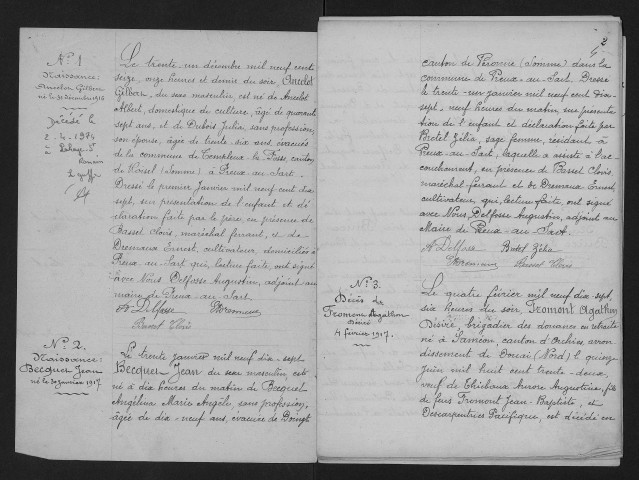 N° 1
Naissance:
Ancelot Gilbert
né le 31 décembre 1916
Décédé le
2-4-1974
à
Romain
Le greffier
Le trente un décembre mil neuf cent
seize, onze heures et demie du soir, Ancelot
Gilbert, du sexe masculin, est né de Ancelot
Albert, domestique de culture, âgé de quarante
sept ans, et de Dubois Julia, sans profession,
son épouse, âgée de trente six ans, évacués
de la commune de Templeux-la-Fosse, canton
de Roisel (Somme) à Preux-au-Sart.
Dressé le premier janvier mil neuf cent dix
sept, sur présentation de l'enfant et dé
claration faite par le père, en présence de
Basset Clovis, maréchal ferrant, et de
Dremaux Ernest, cultivateur, domiciliés à
Preux-au-Sart qui, lecture faite, ont signé
avec Nous Delfosse Augustin, adjoint au
maire de Preux-au-Sart.
A Delfosse EDremaux
Basset Clovis
N° 2.
Naissance:
Becquet Jean
né le 30 janvier 1917
Le trente janvier mil neuf dix sept
Becquet Jean du sexe masculin, est
né à dix heures du matin de Becquet
Angélina Marie Angèle, sans profession,
âgée de dix-neuf ans, évacuée de Doingt
2
canton de Péronne (Somme) dans la
commune de Preux-au-Sart. Dressé
le trente-un janvier mil neuf cent dix
sept, neuf heures du matin, sur présenta
tion de l'enfant et déclaration faite par
Brotel Zélia, sage femme, résidant à
Preux-au-Sart, laquelle a assisté à l'ac
couchement, en présence de Basset Clovis,
maréchal ferrant et de Dremaux Ernest,
cultivateur, qui, lecture faite, ont signé
avec Nous, Delfosse Augustin, adjoint au
Maire de Preux-au-Sart.
A Delfosse Brotel Zélia
EDremaux Basset Clovis
N° 3.
Décès de
Fromont Agathon
Désiré
4 février 1917.
Le quatre février mil neuf dix-sept,
six heures du soir, Fromont Agathon
Désiré, brigadier des douanes en retraite
né à Saméon, canton d'Orchies, arron
dissement de Douai (Nord) le quinze
juin mil huit cent trente-deux,
veuf de Thiboux Aurore Augustine, fils
de feus Fromont Jean-Baptiste, et
Descarpentries Pacifique, est décédé en